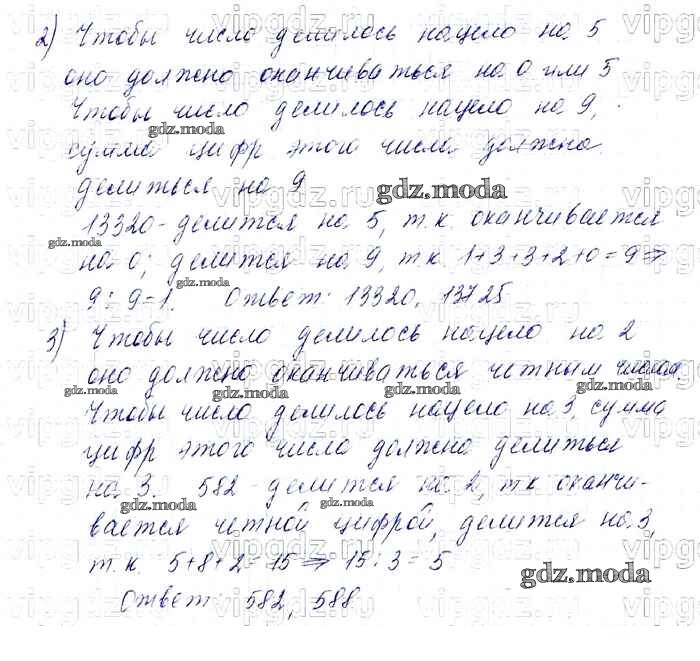 2) Чтобы число делилось нацело на 5
оно должно оканчиваться на 0 или 5
Чтобы число делилось нацело на 9,
сумма цифр этого числа должна
делиться на 9
13320 - делится на 5, т.к. оканчивается
на 0; делится на 9, т.к. 1+3+3+2+0=9⇒
9:9=1. Ответ: 13320, 13725
3) Чтобы число делилось нацело на 2
оно должно оканчиваться четным числом
Чтобы число делилось нацело на 3, сумма
цифр этого числа должна делиться
на 3. 582 - делится на 2, т.к. оканчи-
вается четной цифрой, делится на 3,
т.к. 5+8+2=15⇒ 15:3=5
Ответ: 582, 588
gdz.moda
gdz.moda
gdz.moda
gdz.moda
gdz.moda
gdz.moda
gdz.moda
gdz.moda
gdz.moda
gdz.moda
gdz.moda
gdz.moda
gdz.moda
gdz.moda